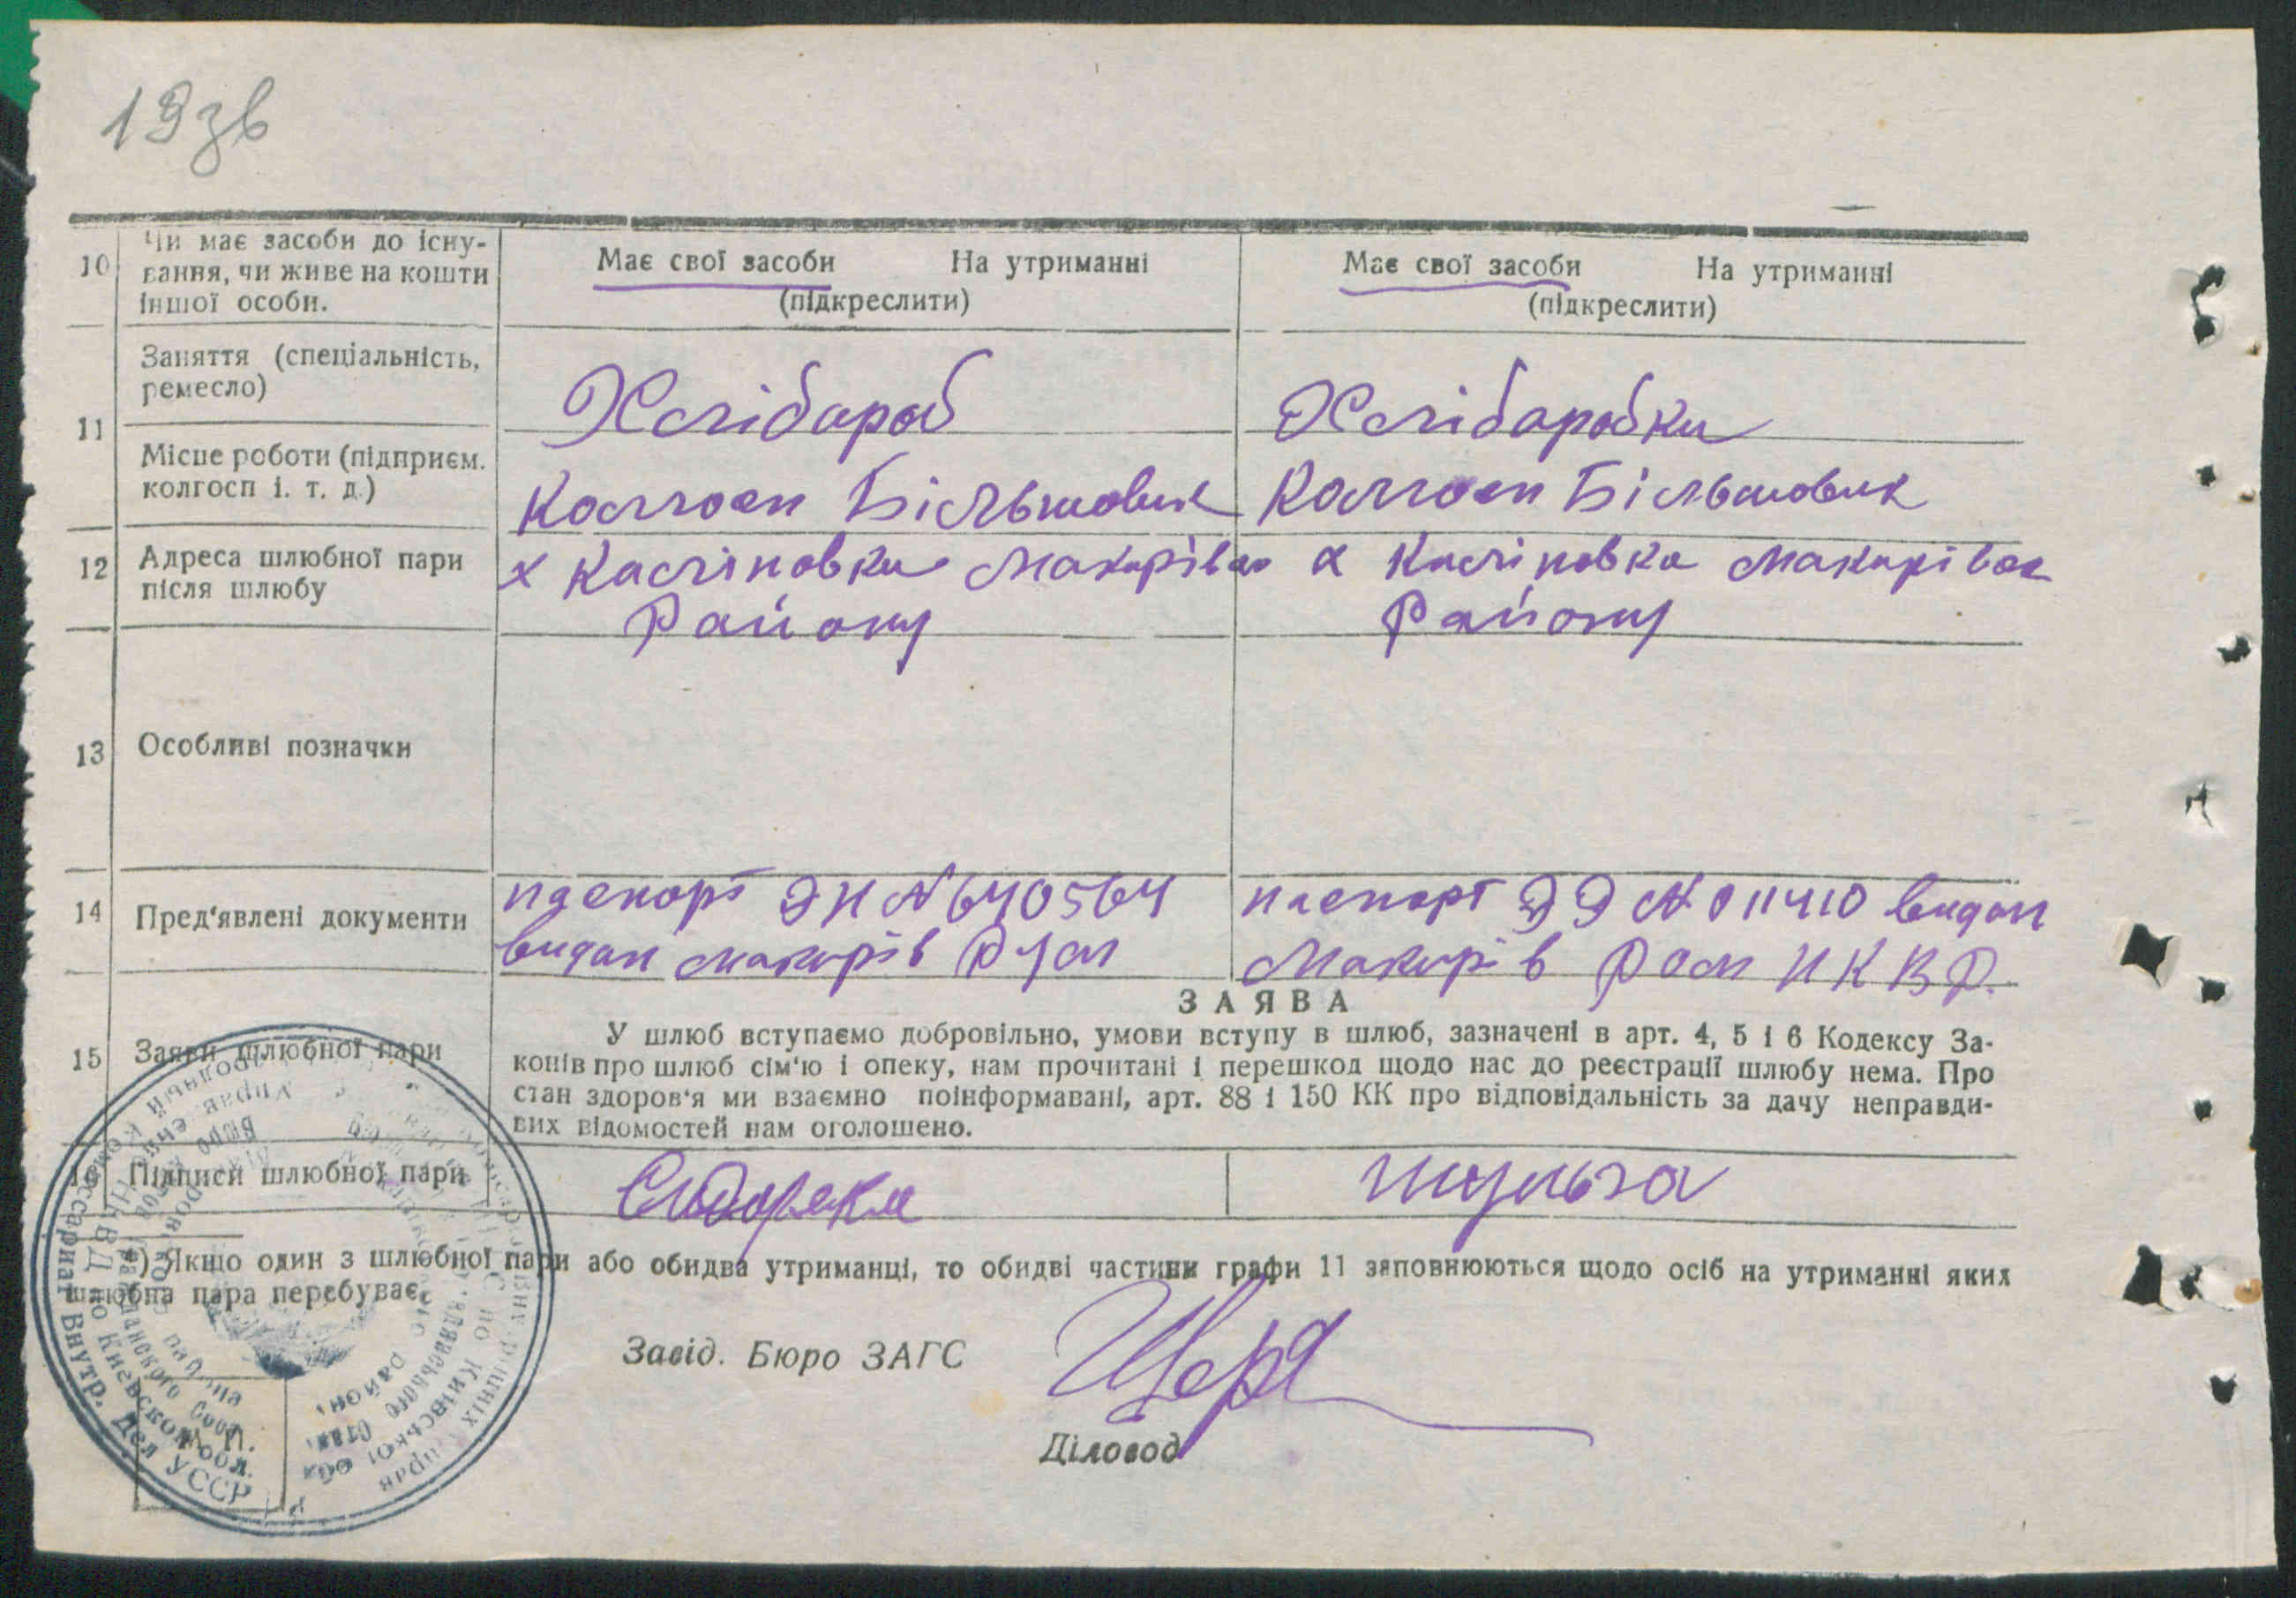 19зв
10 Чи має засоби до існу-
вання, чи живе на кошти
іншої особи.
Має свої засоби На утриманні
(підкреслити)
Має свої засоби На утриманні
(підкреслити)
11 Заняття (спеціальність,
ремесло)
Хлібароб
Хлібаробка
Місце роботи (підприєм.
колгосп і. т. д.)
Колгосп Більшовик
Колгосп Більшовик
12 Адреса шлюбної пари
після шлюбу
х Каліновка Макарівск
Району
х Каліновка Макарівск
Району
13 Особливі позначки
14 Пред'явлені документи
паспорт ЭН № 640564
видан Макарів
паспорт ЭЭ № 011410 видан
Макарів РОМ НКВД.
15 Заяви шлюбної пари
ЗАЯВА
У шлюб вступаємо добровільно, умови вступу в шлюб, зазначені в арт. 4, 5 і 6 Кодексу За-
конів про шлюб сім'ю і опеку, нам прочитані і перешкод щодо нас до реєстрації шлюбу нема. Про
стан здоров'я ми взаємно поінформавані, арт. 88 і 150 КК про відповідальність за дачу неправди-
вих відомостей нам оголошено.
16 Підписи шлюбної пари
Шульга
*) Якщо один з шлюбної пари або обидва утриманці, то обидві частини графи 11 заповнюються щодо осіб на утриманні яких
шлюбна пара перебуває.
Завід. Бюро ЗАГС
Діловод
М. П.
Народный Комиссариат Внутр. Дел УССР
НКВД по Киевской обл.